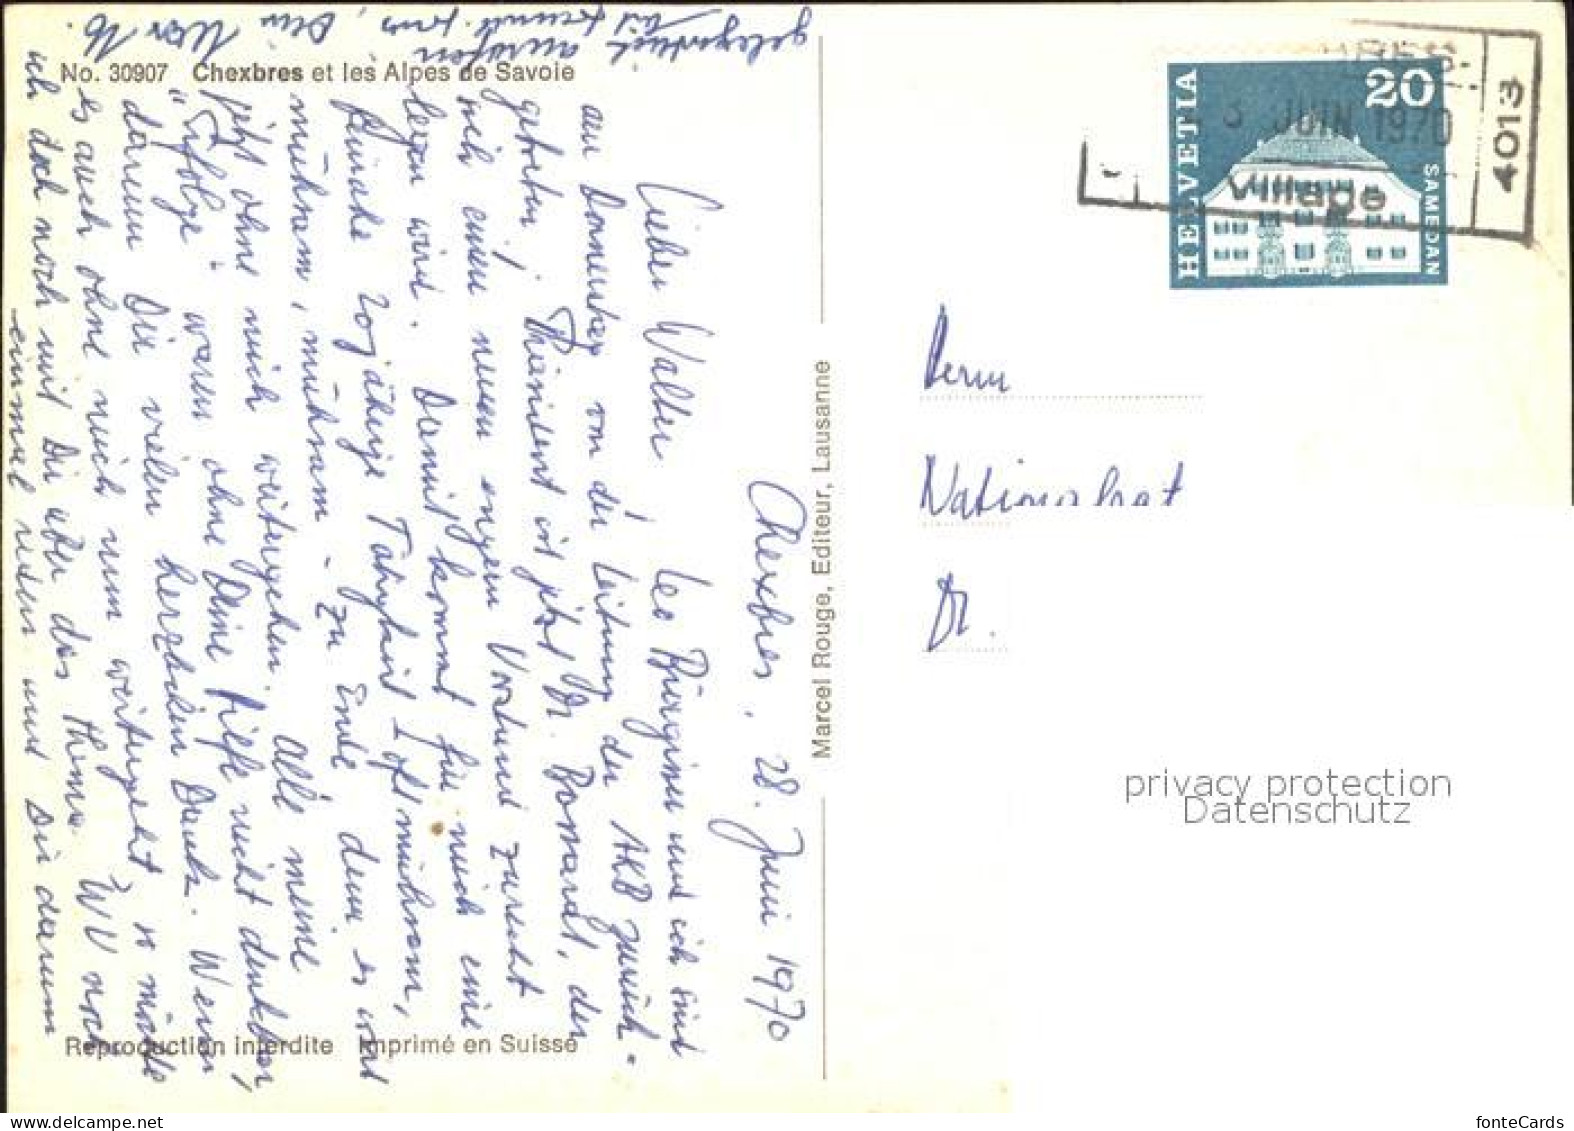 No. 30907 Chexbres et les Alpes de Savoie
Chexbres, 28. Juni 1970
Lieber Walter
Leo Bürgisser und ich sind
am Donnerstag von der Leitung der AKB zurück-
getreten; Präsident ist jetzt Dr. der
sich einen neuen engern Vorstand zurecht
legen wird. Damit kommt für mich eine
beinahe 20jährige Tätigkeit - oft mühsam,
mühsam, mühsam - zu Ende denn es wird
jetzt ohne mich weitergehen. Alle meine
"Erfolge" waren ohne Deine Hilfe nicht denkbar,
darum Dir vielen herzlichen Dank. Wenn
es auch ohne mich nun weitergeht, so möchte
ich doch noch mit Dir über das Thema WV noch
einmal reden und Dir darum
gelegentlich
anrufen
Dein
Marcel Rouge, Editeur, Lausanne
Reproduction interdite Imprimé en Suisse
HELVETIA
20
SAMEDAN
JUIN 1970
Village
4013
Herrn
Nationalrat
Dr.
privacy protection
Datenschutz
fonteCards